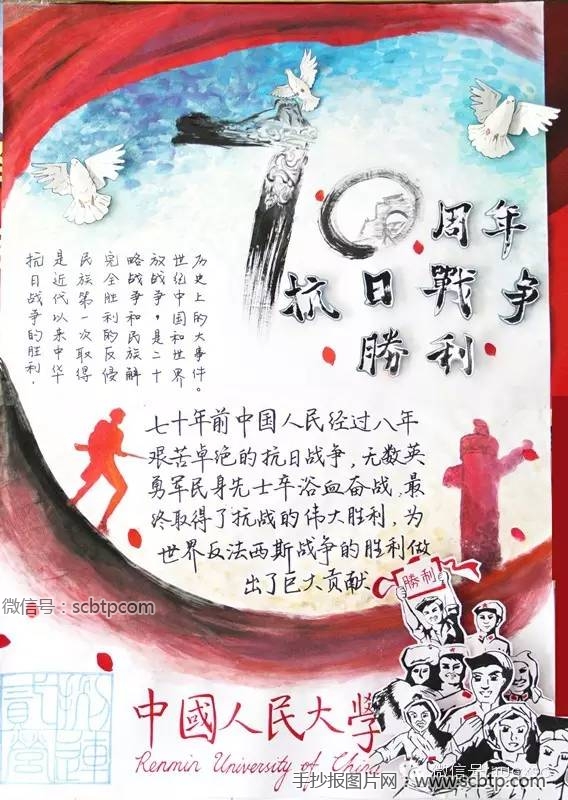 70周年
抗日戰争
勝利
抗日战争的胜利.
是近代以来中华
民族第一次取得
完全胜利的反侵
略战争和民族解
放战争，是二十
世纪中国和世界
历史上的大事件。
七十年前中国人民经过八年
艰苦卓绝的抗日战争，无数英
勇军民身先士卒浴血奋战，最
终取得了抗战的伟大胜利，为
世界反法西斯战争的胜利做
出了巨大贡献
勝利
微信号: scbtpcom
中國人民大學
Renmin University of China
微信号:
手抄报图片网:www.scbtp.com